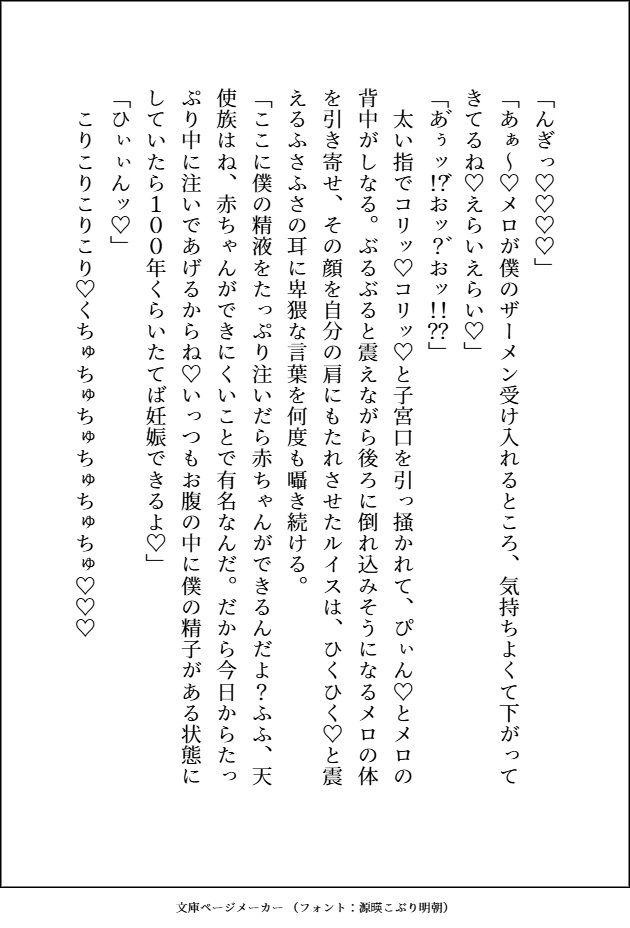 「んぎっ♡♡♡♡」
「あぁ～♡メロが僕のザーメン受け入れるところ、気持ちよくて下がって
きてるね♡えらいえらい♡」
「あ゙ぅッ!?おッ？゛おッ!!??」
　太い指でコリッ♡コリッ♡と子宮口を引っ掻かれて、ぴぃん♡とメロの
背中がしなる。ぶるぶると震えながら後ろに倒れ込みそうになるメロの体
を引き寄せ、その顔を自分の肩にもたれさせたルイスは、ひくひく♡と震
えるふさふさの耳に卑猥な言葉を何度も囁き続ける。
「ここに僕の精液をたっぷり注いだら赤ちゃんができるんだよ？ふふ、天
使族はね、赤ちゃんができにくいことで有名なんだ。だから今日からたっ
ぷり中に注いであげるからね♡いっつもお腹の中に僕の精子がある状態に
していたら１００年くらいたてば妊娠できるよ♡」
「ひぃぃんッ♡」
　こりこりこりこり♡くちゅちゅちゅちゅちゅちゅ♡♡♡
文庫ページメーカー （フォント：源暎こぶり明朝）